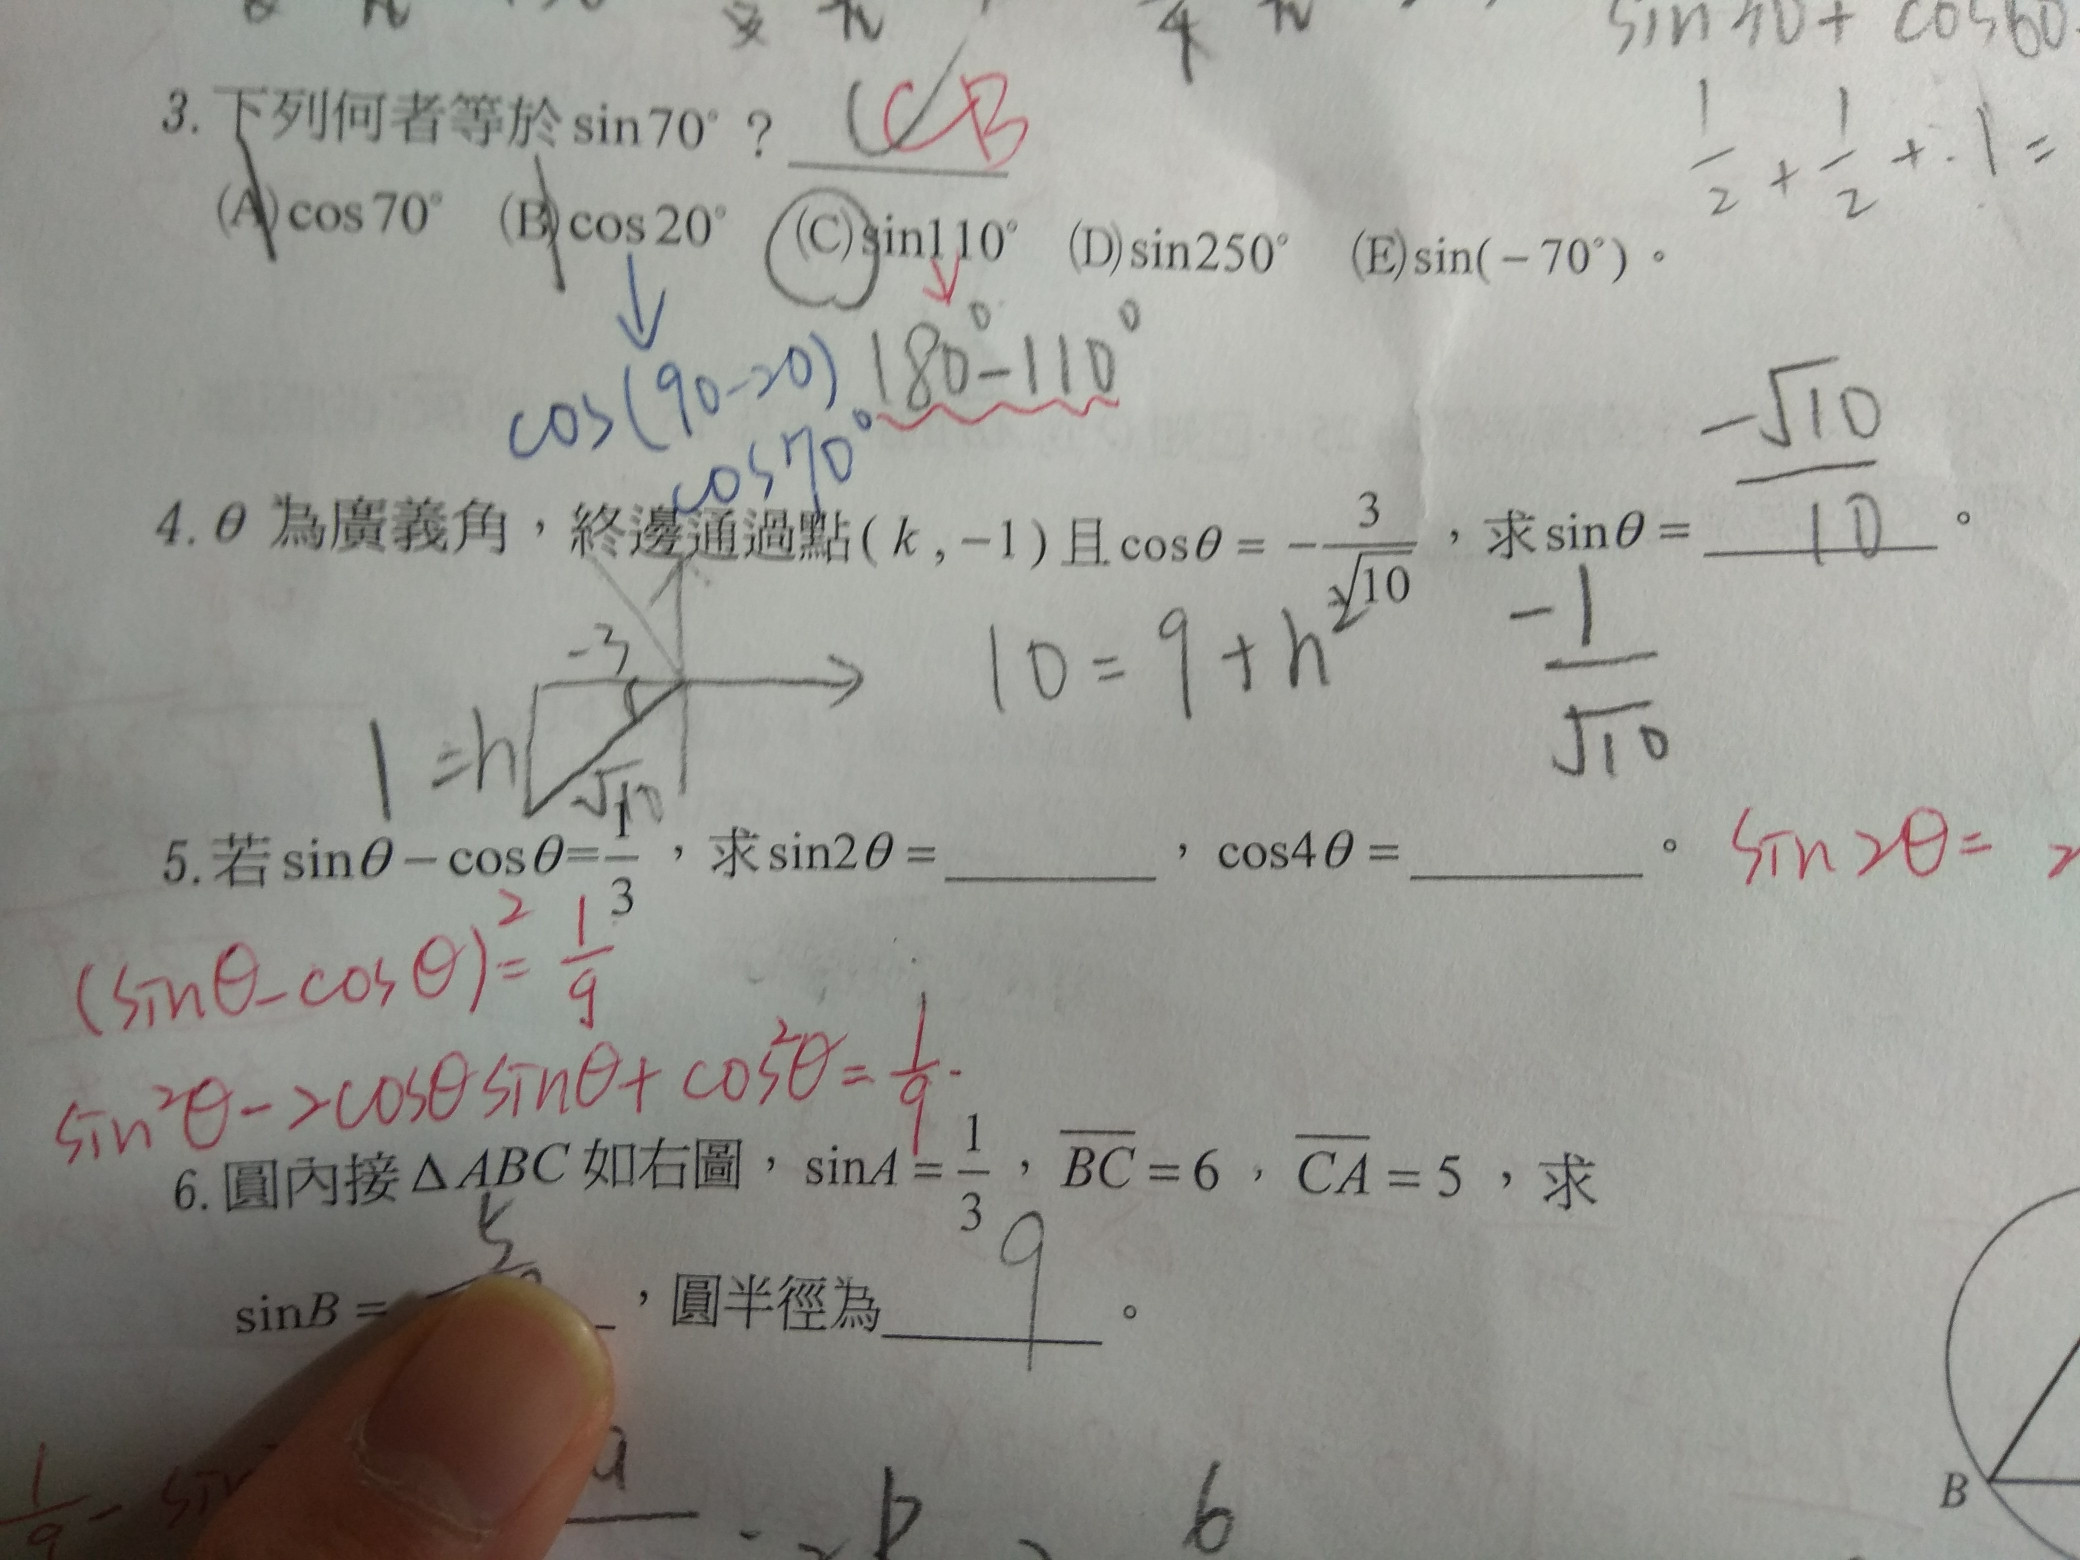 sin 70 + cos60
1/2 + 1/2 + . 1 =
3. 下列何者等於 sin70° ? C C B
(A) cos70° (B) cos20° (C) sin110° (D) sin250° (E) sin(-70°)。
cos(90-20) 180°-110°
cos70°
4. θ 為廣義角，終邊通過點( k , -1 )且 cosθ = -3/√10 ，求 sinθ = -√10/10 。
-3
10 = 9 + h² -1/√10
1 = h
√10
5. 若 sinθ - cosθ = 1/3 ，求 sin2θ = ________ ，cos4θ = ________ 。 sin2θ = 2
(sinθ - cosθ)² = 1/9
sin²θ - 2cosθ sinθ + cos²θ = 1/9
6. 圓內接 Δ ABC 如右圖，sinA = 1/3 ，B̅C̅ = 6 ，C̅A̅ = 5 ，求
sinB = 5 ，圓半徑為 9 。
1/9 - sin
a
b 6
B